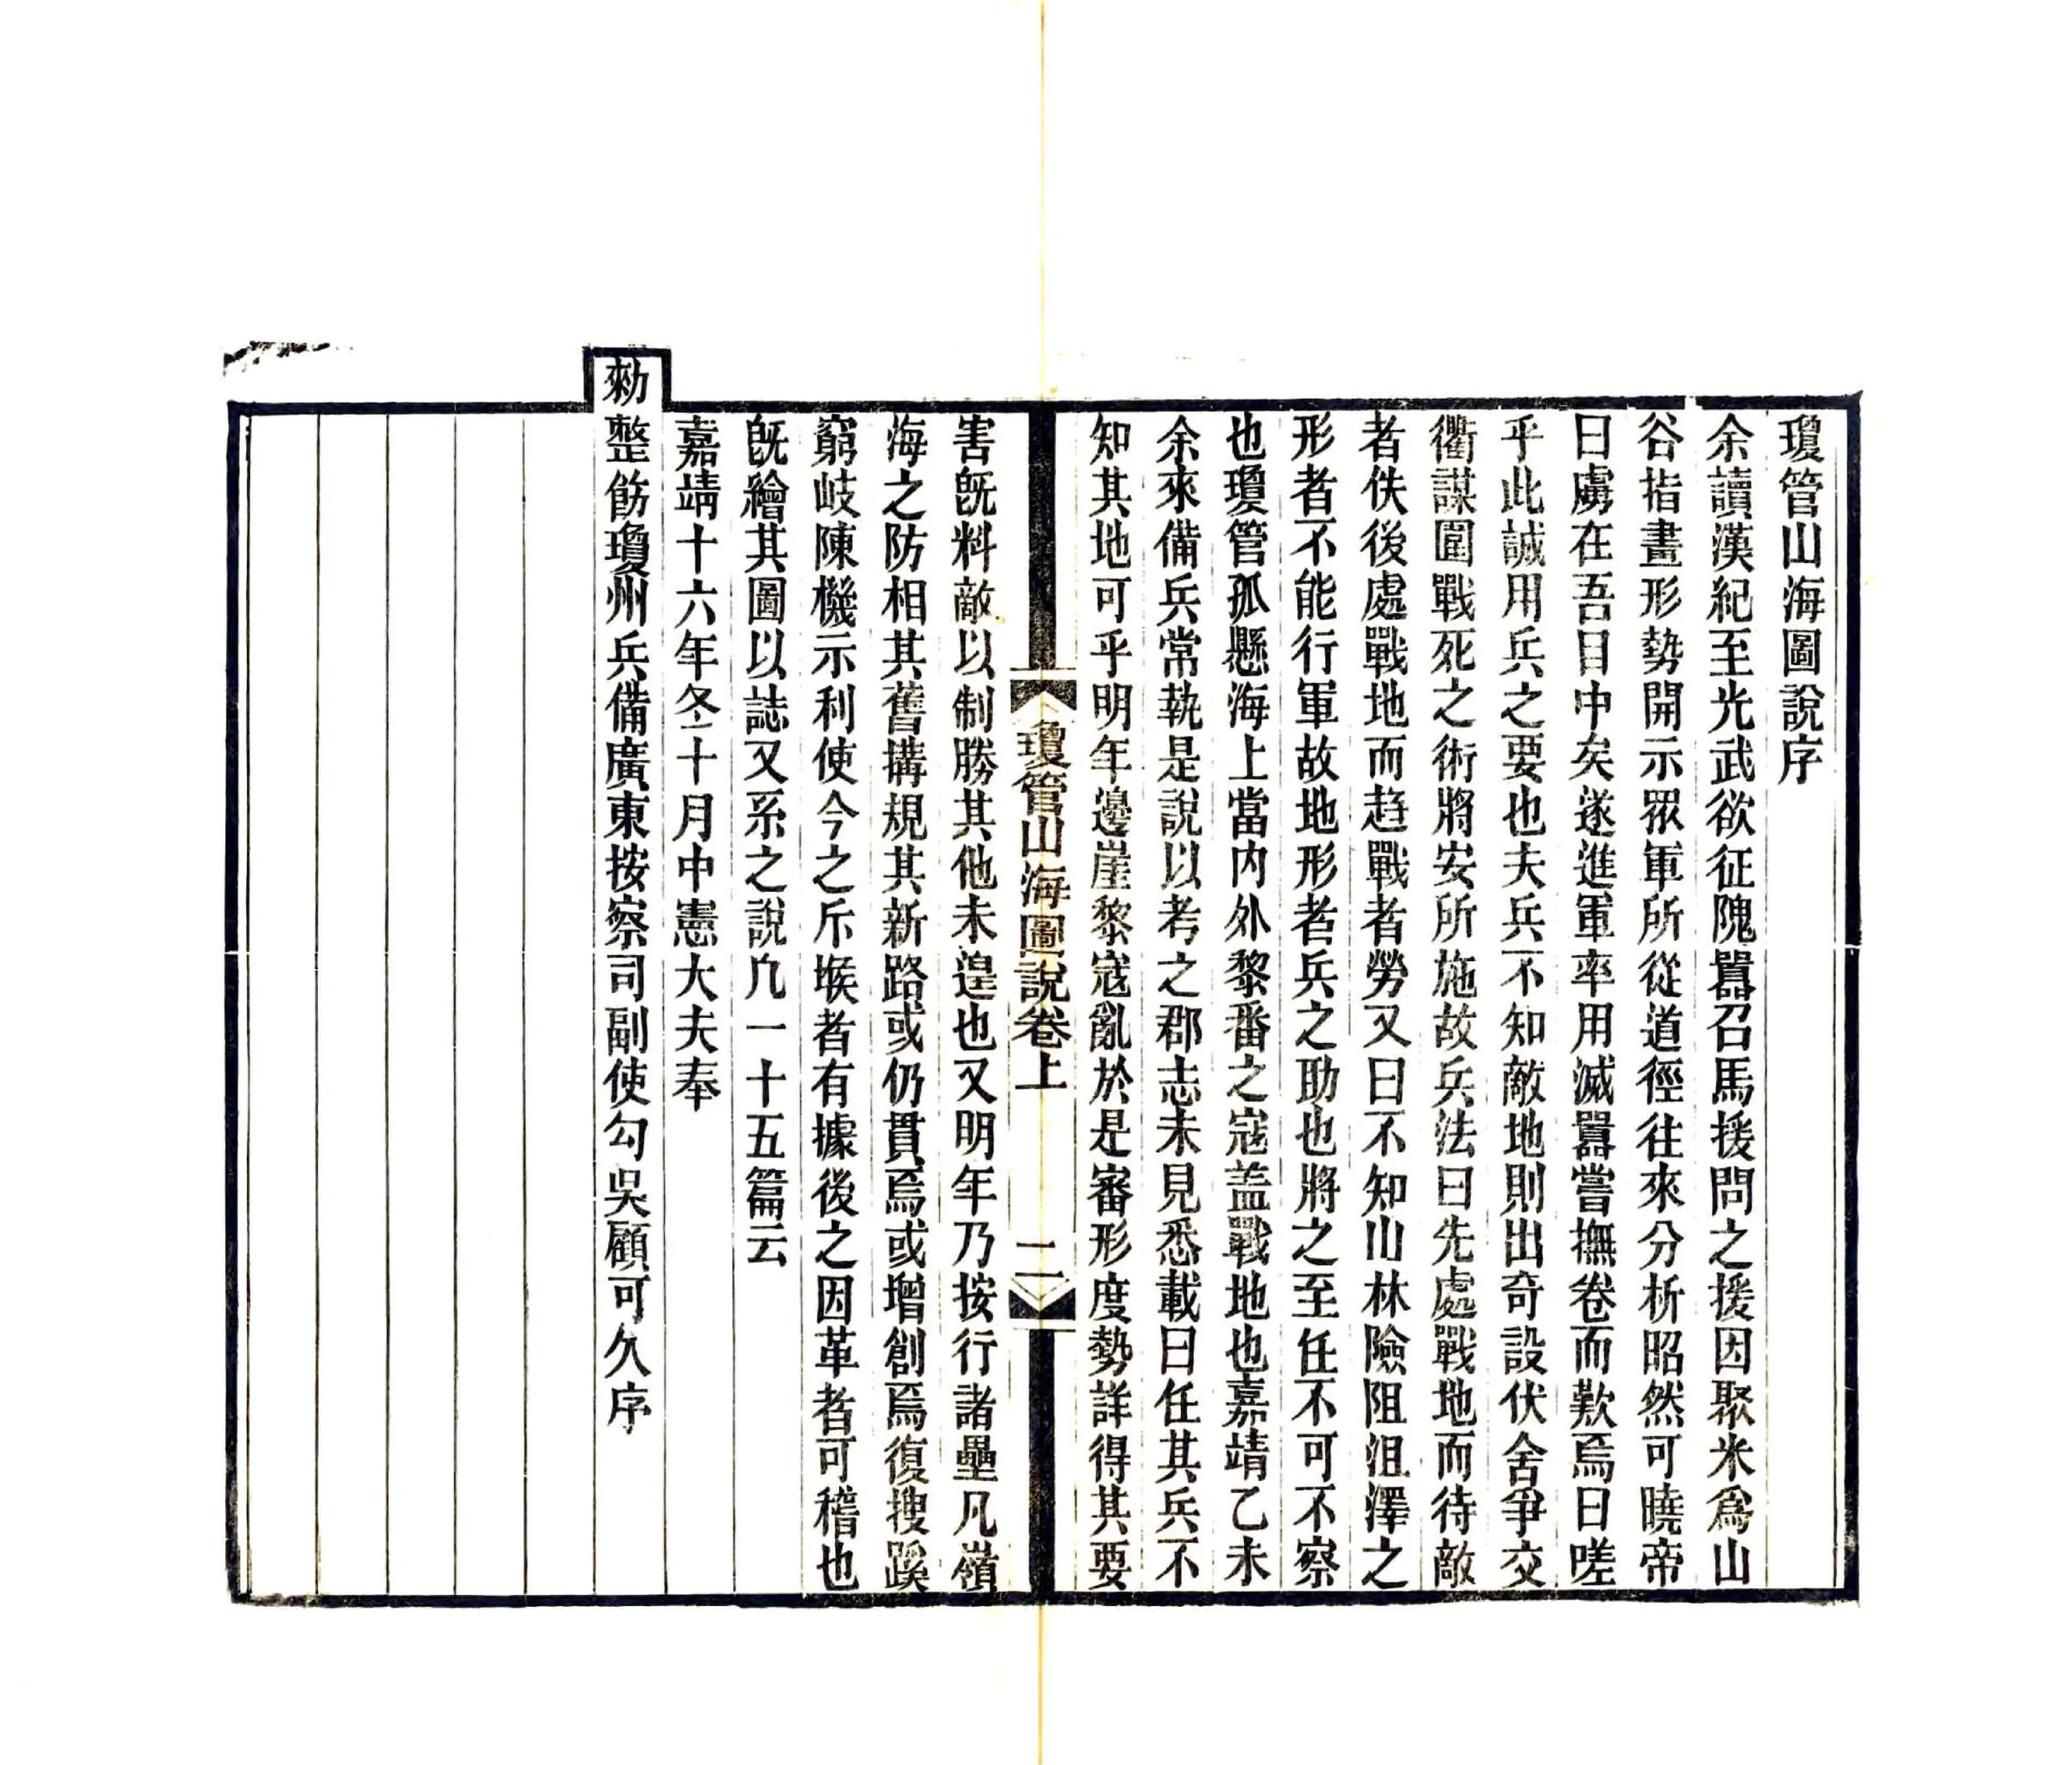 瓊管山海圖說序
余讀漢紀至光武欲征隗囂召馬援問之援因聚米爲山
谷指畫形勢開示眾軍所從道徑往來分析昭然可曉帝
曰虜在吾目中矣遂進軍率用滅囂嘗撫卷而歎焉曰嗟
乎此誠用兵之要也夫兵不知敵地則出奇設伏舍爭交
衢謀圍戰死之術將安所施故兵法曰先處戰地而待敵
者佚後處戰地而趋戰者勞又曰不知山林險阻沮澤之
形者不能行軍故地形者兵之助也將之至任不可不察
也瓊管孤懸海上當内外黎番之寇盖戰地也嘉靖乙未
余來備兵常執是說以考之郡志未見悉載曰任其兵不
知其地可乎明年邊崖黎寇亂於是審形度勢詳得其要
瓊管山海圖說卷上
二
害旣料敵以制勝其他未遑也又明年乃按行諸壘凡嶺
海之防相其舊搆規其新路或仍貫焉或增創焉復搜蹊
窮岐陳機示利使今之斥堠者有據後之因革者可稽也
旣繪其圖以誌又系之說凢一十五篇云
嘉靖十六年冬十月中憲大夫奉
勑整飭瓊州兵備廣東按察司副使勾吳顧可久序